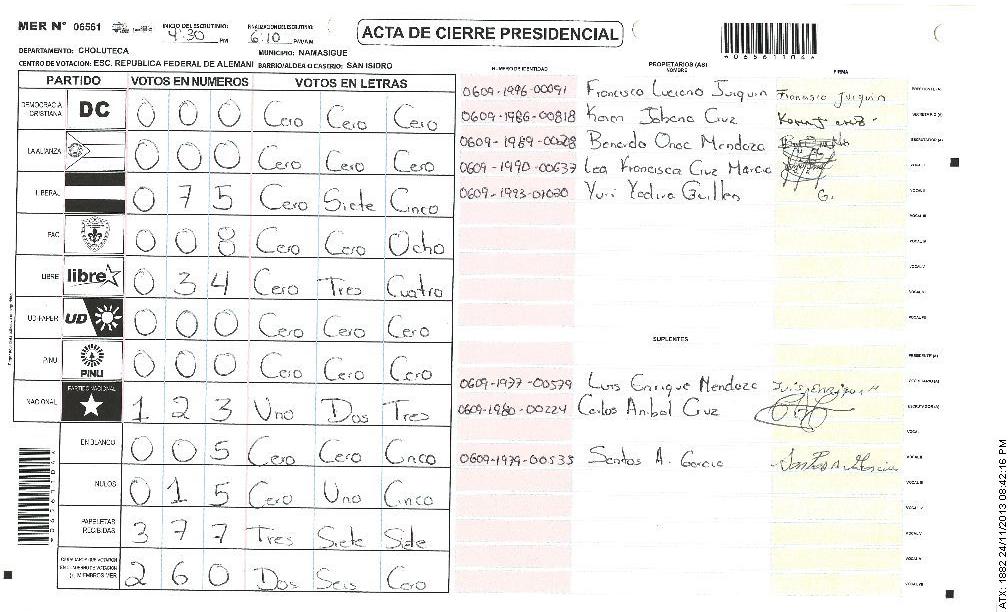 MER N° 06561 INICIO DEL ESCRUTINIO: 4:30 PM FINALIZACION DEL ESCRUTINIO: 6:10 PM/AM
ACTA DE CIERRE PRESIDENCIAL
DEPARTAMENTO: CHOLUTECA MUNICIPIO: NAMASIGUE
CENTRO DE VOTACION: ESC. REPUBLICA FEDERAL DE ALEMANI BARRIO/ALDEA O CASERIO: SAN ISIDRO
PARTIDO VOTOS EN NUMEROS VOTOS EN LETRAS
DEMOCRACIA CRISTIANA DC 0 0 0 Cero Cero Cero
LA ALIANZA 0 0 0 Cero Cero Cero
LIBERAL 0 7 5 Cero Siete Cinco
PAC 0 0 8 Cero Cero Ocho
LIBRE libre 0 3 4 Cero Tres Cuatro
UD-FAPER UD 0 0 0 Cero Cero Cero
PINU PINU 0 0 0 Cero Cero Cero
NACIONAL PARTIDO NACIONAL 1 2 3 Uno Dos Tres
EN BLANCO 0 0 5 Cero Cero Cinco
NULOS 0 1 5 Cero Uno Cinco
PAPELETAS RECIBIDAS 3 7 7 Tres Siete Siete
MIEMBROS MER 2 6 0 Dos Seis Cero
NUMERO DE IDENTIDAD PROPIETARIOS (AS) NOMBRE FIRMA
0609-1996-00091 Francisco Luciano Juiquin Francisco Juiquin PRESIDENTE (A)
0609-1986-00818 Karen Johana Cruz Karen J cruz SECRETARIO (A)
0609-1989-00028 Mendoza ESCRUTADOR (A)
0609-1990-00637 Lea Francisca Cruz Marcia VOCAL I
0609-1993-01030 Yuri Yadira Guillen G. VOCAL II
VOCAL III
VOCAL IV
VOCAL V
VOCAL VI
VOCAL VII
SUPLENTES
PRESIDENTE (A)
0609-1977-00579 Luis Enrique Mendoza Luis Enrique M SECRETARIO (A)
0609-1980-00224 Carlos Anibal Cruz ESCRUTADOR (A)
VOCAL I
0609-1979-00535 Santos A. Garcia VOCAL II
VOCAL III
VOCAL IV
VOCAL V
VOCAL VI
VOCAL VII
*06561104*
ATX: 1882 24/11/2013 08:42:16 PM